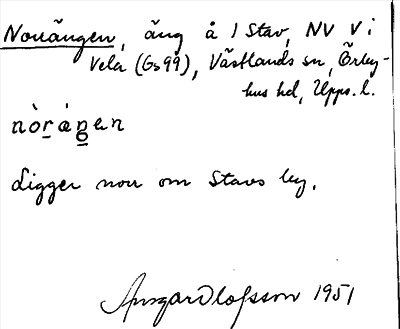 Norrängen, äng å 1 Stav, NV Vi
Vela (Gs 99), Västlands sn, Örby-
hus hd, Upps. l.
nòṟáṉen
Ligger norr om Stavs by.
Ansgar Olofsson 1951